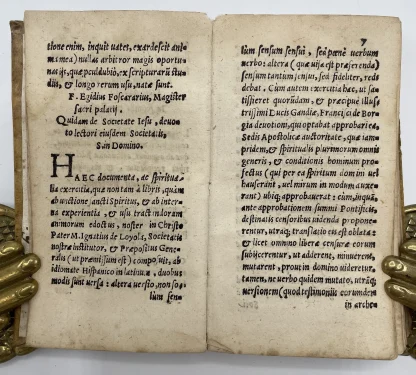 tione enim, inquit vates, exardescit ani-
ma mea) nullas arbitror magis oportu-
nas ijs, quæ
diis, & longo rerum usu, natæ sunt.
F. Egidius Foscararius, Magister
sacri palatij.
Quidam de Societate Iesu, deuo-
to lectori eiusdem Societatis,
in Domino.
HAEC documenta, ac spiritua-
lia exercitia, quæ non tam à libris, quàm
ab unctione sancti Spiritus, & ab inter-
na experientia, & usu tractandorum
animorum edoctus, noster in Christo
Pater M. Ignatius de Loyola, Societatis
nostræ institutor, & Præpositus Gene-
ralis (ut præmissum est) composuit, ab
idiomate Hispanico in latinũ, duobus
modis sunt versa: altera versio, non so-
lùm sen-
7
lùm sensum sensui, sed penè verbum
verbo: altera (quæ visa est præferenda)
sensum tantùm sensui, sed fideliter, red-
debat. Cum autem exercitia hæc, ut sa-
tisfieret quorũdam, & præcipuè Illus-
trissimi Ducis Gandiæ, Francisci de Bor-
gia devotioni, quoptabat approbari ea,
Sedis Apostolicæ auctoritate, quæ tam-
pridem, & spiritualis plurimorum omnis
generis, & conditionis hominum pro-
fectus (qui per ea spiritum domini vel
hauserant, vel mirum in modum auxe-
rant) ubiq; approbaverat: cùm, inquã,
ante approbationem summi Pontificis,
destinatis censoribus videnda propone-
rentur, utraq; translatio eis est oblata:
& licet omnino liberæ censuræ eorum
subijcerentur, ut adderent, minuerent,
mutarent, prout in domino videretur:
tamen, ne verbo quidem mutato, utrãq;
versionem (quod testimoniis eorumdem
in arche-